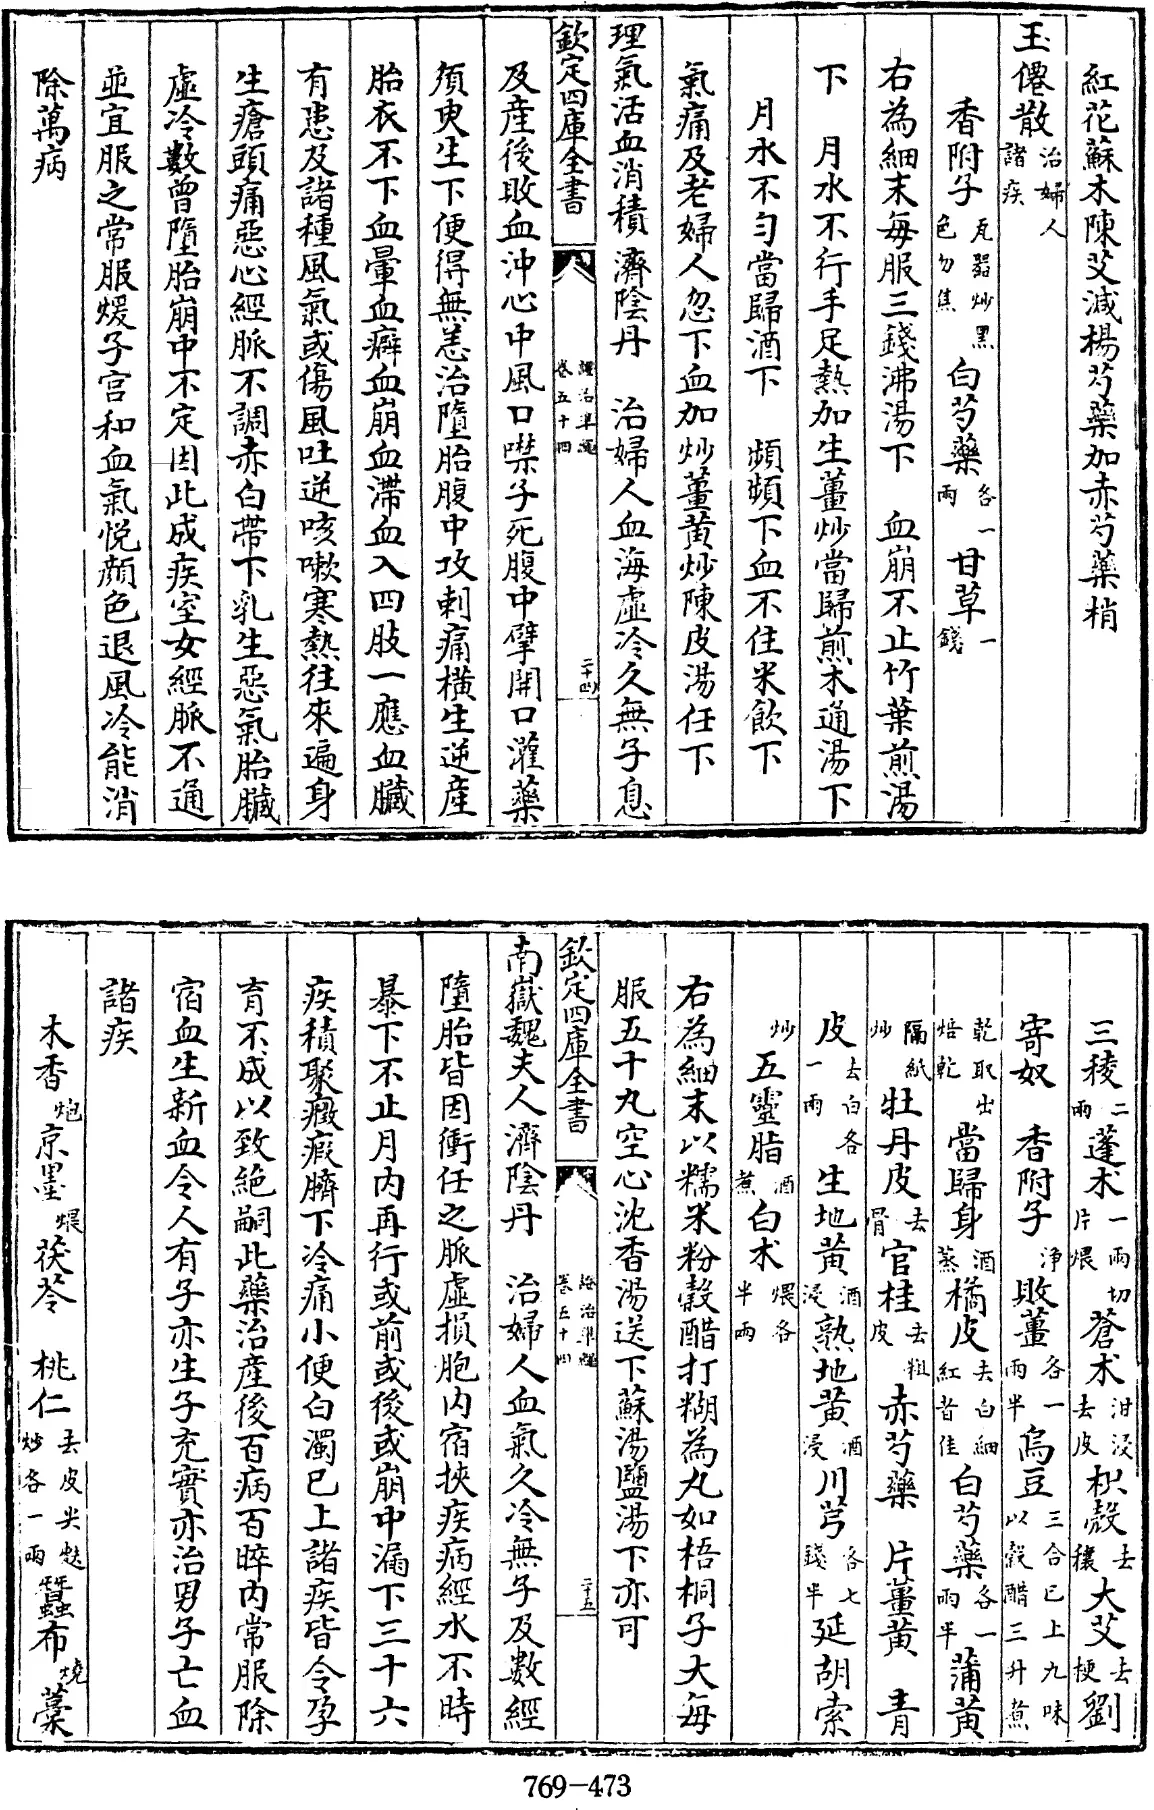 紅花蘇木陳艾減楊芍藥加赤芍藥梢
玉僊散治婦人諸疾
香附子瓦器炒黑色勿焦白芍藥各一兩甘草一錢
右為細末每服三錢沸湯下　血崩不止竹葉煎湯
下　月水不行手足熱加生薑炒當歸煎木通湯下
月水不勻當歸酒下　頻頻下血不住米飲下
氣痛及老婦人忽下血加炒薑黄炒陳皮湯任下
理氣活血消積濟陰丹　治婦人血海虛冷久無子息
欽定四庫全書　證治準繩卷五十四　二十四
及產後敗血沖心中風口噤子死腹中擘開口灌藥
須臾生下便得無恙治墮胎腹中攻刺痛橫生逆產
胎衣不下血暈血癖血崩血滯血入四肢一應血臟
有患及諸種風氣或傷風吐逆咳嗽寒熱往來遍身
生瘡頭痛惡心經脈不調赤白帶下乳生惡氣胎臟
虛冷數曾墮胎崩中不定因此成疾室女經脈不通
並宜服之常服煖子宫和血氣悦顔色退風冷能消
除萬病
三稜二兩蓬术一兩切片煨蒼术泔浸去皮枳殼去穰大艾去梗劉
寄奴　香附子淨敗薑各一兩半烏豆三合已上九味以穀醋三升煮
乾取出焙乾當歸身酒蒸橘皮去白細紅者佳白芍藥各一兩半蒲黄
隔紙炒牡丹皮去骨官桂去粗皮赤芍藥　片薑黄　青
皮去白各一兩生地黄酒浸熟地黄酒浸川芎各七錢半延胡索
炒五靈脂酒煮白术煨各半兩
右為細末以糯米粉穀醋打糊為丸如梧桐子大每
服五十丸空心沈香湯送下蘇湯鹽湯下亦可
欽定四庫全書　證治準繩卷五十四　二十五
南嶽魏夫人濟陰丹　治婦人血氣久冷無子及數經
墮胎皆因衝任之脈虛損胞内宿挾疾病經水不時
暴下不止月内再行或前或後或崩中漏下三十六
疾積聚癥瘕臍下冷痛小便白濁已上諸疾皆令孕
育不成以致絶嗣此藥治產後百病百晬内常服除
宿血生新血令人有子亦生子充實亦治男子亡血
諸疾
木香炮京墨煨茯苓　桃仁去皮尖麩炒各一兩蠶布燒藁
769—473